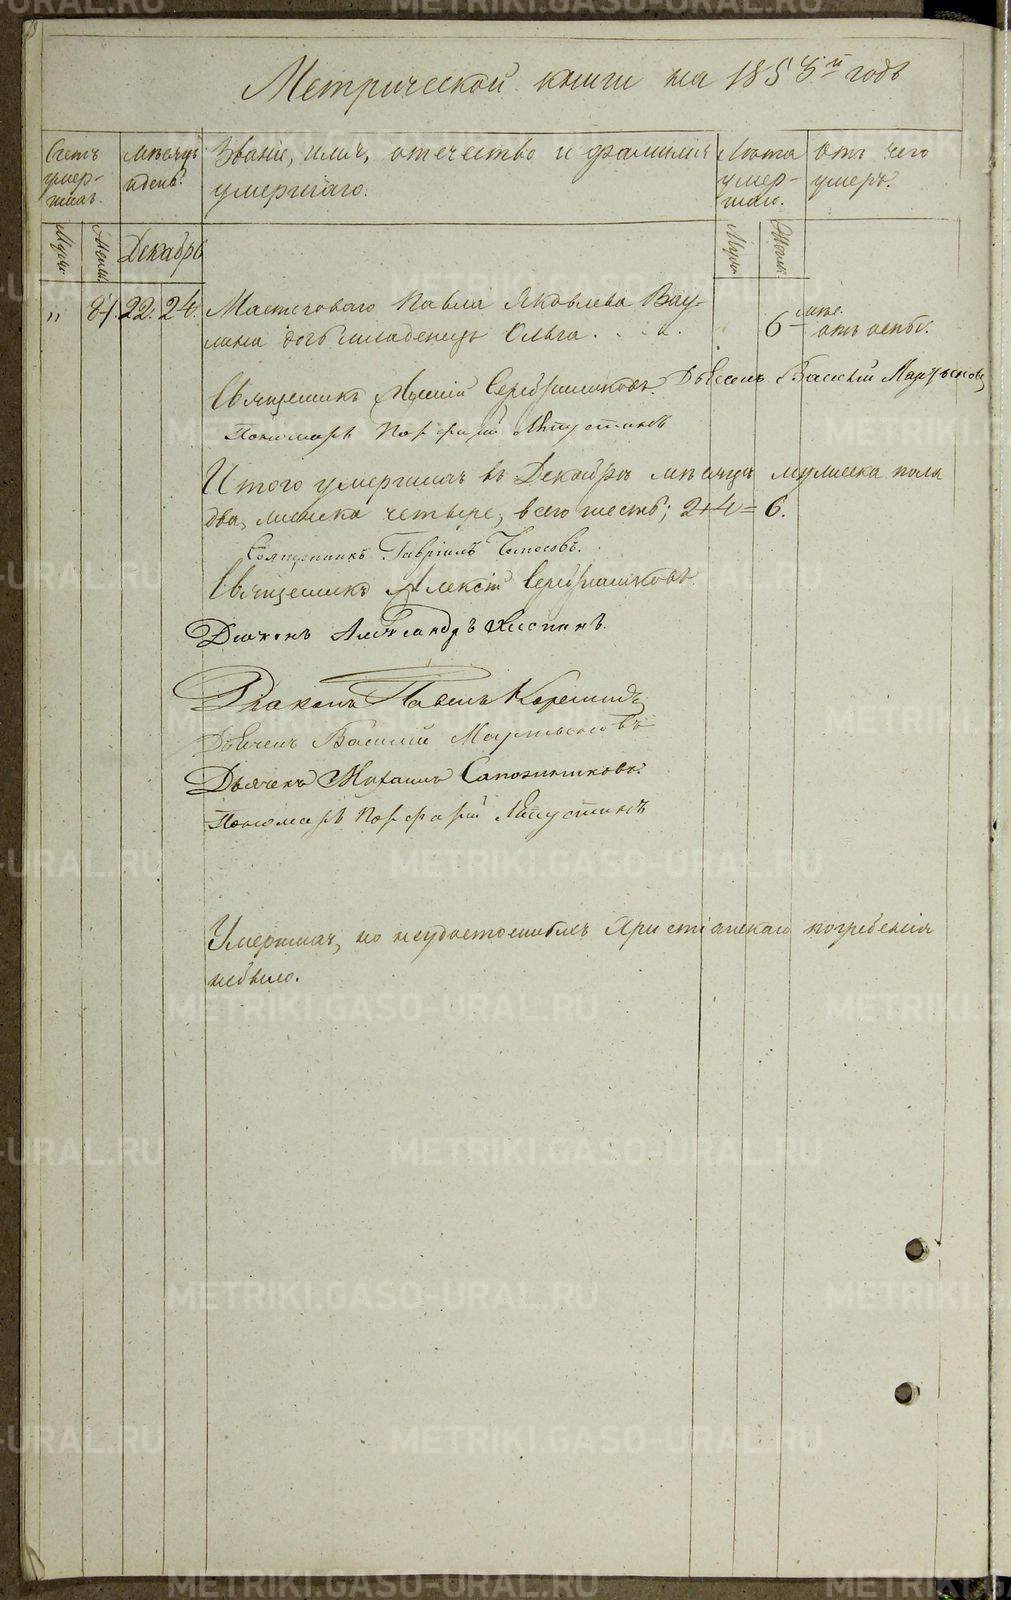 Метрической книги на 1855й годъ
Счетъ умер-шихъ.
мѣсяцъ и день.
Званіе, имя, отечество и фамилія умершаго.
Лѣта умер-шаго.
Отъ чего умеръ.
Муж. Женс. Декабрь Муж. Женс.
" 87. 22. 24. Мастероваго Павла Яковлева Вау-
лина дочь младенецъ Ольга. 6 лѣтъ. отъ оспы.
Священникъ Алексій Серебренниковъ. Дьячекъ Василій Мартьяновъ
Пономарь Порфирій Ляпустинъ
Итого умершихъ въ Декабрѣ мѣсяцѣ мужеска пола
два, женска четыре, всего шесть; 2+4=6.
Священникъ Гавріилъ
Священникъ Алексій Серебренниковъ
Діаконъ Александръ
Діаконъ Павелъ
Дьячекъ Василій Мартьяновъ
Дьячекъ Михаилъ Сапожниковъ.
Пономарь Порфирій Ляпустинъ
Умершихъ, но неудостоившихся Христіанскаго погребенія
небыло.
METRIKI.GASO-URAL.RU